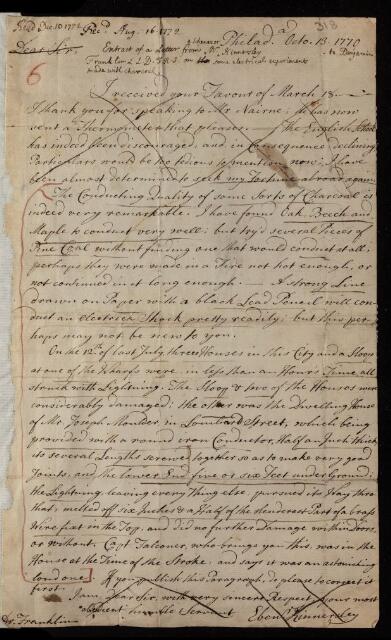 Read Dec. 10 1772 Rec.d Aug. 16. 1772 313
Philad.a Octo. 13. 1770
Dear Sir, Extract of a Letter from Mr. Ebenezer Kinnersley to Benjamin
Franklin L.L.D. F.R.S. on some electrical experiments
made with charcoal
6
I received your Favour of March 18.
Thank you for speaking to Mr Nairne. He has now
sent a Thermometer that pleases. The English School
has indeed been discouraged, and in Consequence declining.
Particulars would be too tedious to mention now; I have
been almost determined to seek my Fortune abroad again.
The Conducting Quality of some Sorts of Charcoal is
indeed very remarkable. I have found Oak, Beech and
Maple to conduct very well; but try'd several Pieces of
Pine Coal without finding one that would conduct at all;
perhaps they were made in a Fire not hot enough, or
not continued in it long enough. A strong Line
drawn on Paper with a black Lead Pencil will con-
duct an electrical Shock pretty readily; but this per-
haps may not be new to you.
On the 12.th of last July, three Houses in this City and a Sloop
at one of the Wharfs were, in less than an Hour's Time, all
struck with Lightning. The Sloop & two of the Houses were
considerably damaged; the other was the Dwelling House
of Mr Joseph Moulder in Lombard Street, which being
provided with a round iron Conductor, Half an Inch thick
its several Lengths screwed together so as to make very good
Joints, and the lower End five or six Feet underground;
the Lightning, leaving every Thing else, pursued its Way thro
that; melted off six Inches & a Half of the slenderest Part of a brass
Wire fixt in the Top, and did no further Damage within Doors
or without. Capt Falconer, who brings you this, was in the
House at the Time of the Stroke, and says it was an astonishing
loud one. If you publish this Paragraph, do please to correct it
first. I am, dear Sir, with very sincere Respect your most
obedient humble Servant Eben.r Kinnersley
Dr. Franklin